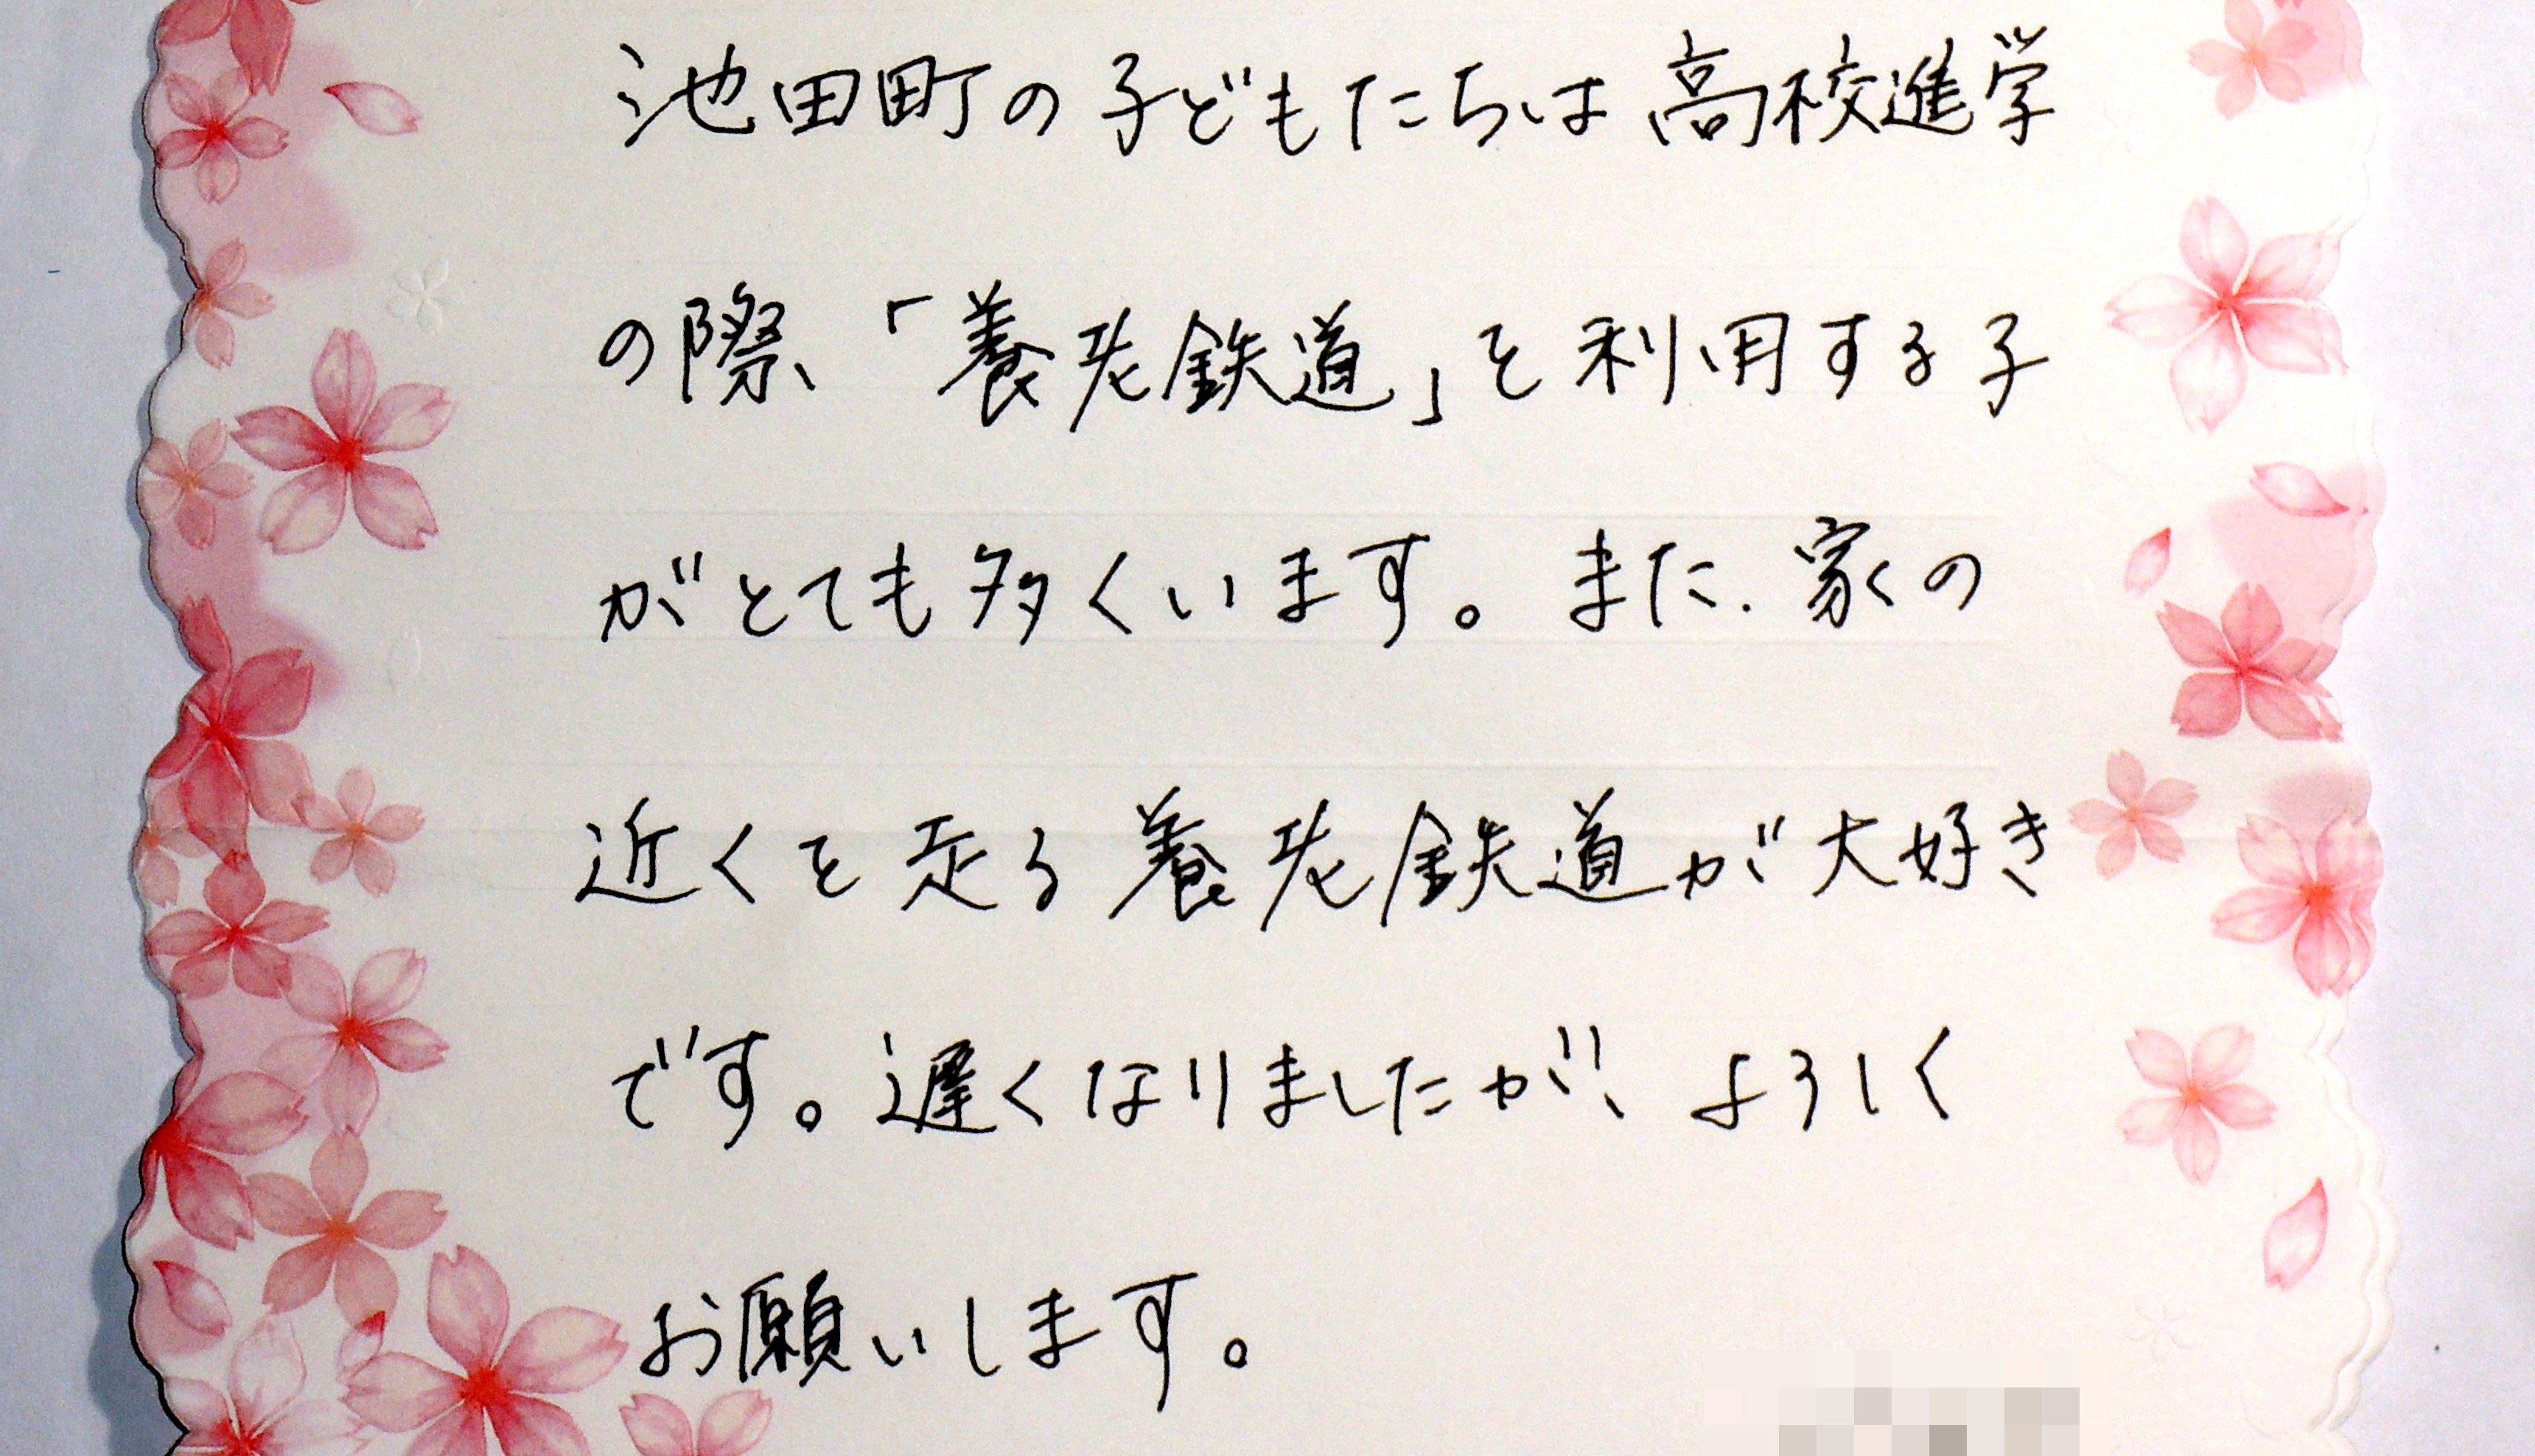 池田町の子どもたちは高校進学
の際、「養老鉄道」を利用する子
がとても多くいます。また、家の
近くを走る養老鉄道が大好き
です。遅くなりましたが、よろしく
お願いします。